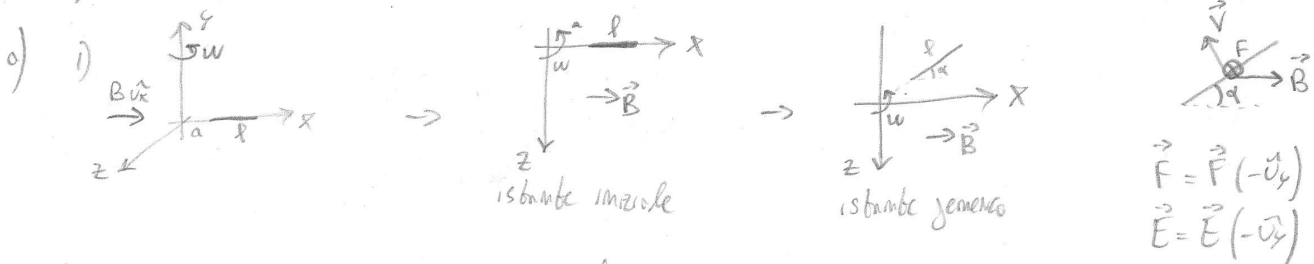 a) i) y ω B ûx a l x z
→ a ω l x → B⃗ z istante iniziale
→ l α ω x → B⃗ z istante generico
V⃗ F α B⃗
F⃗ = F⃗ (-ûy)
E⃗ = E⃗ (-ûy)